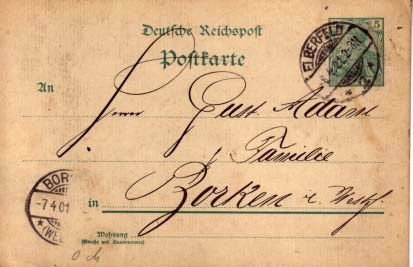 Deutsche Reichspost
5
Postkarte
ELBERFELD
An
Herrn Gust. Adam
Familie
BOR
-7 4.01
(WE
in Borken i. Westf.
Wohnung
(Straße und Hausnummer)